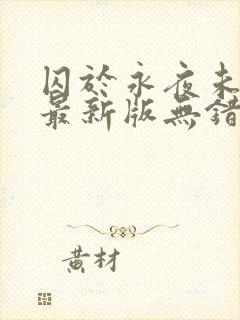 囚於永夜未
最新版無錯
黃材